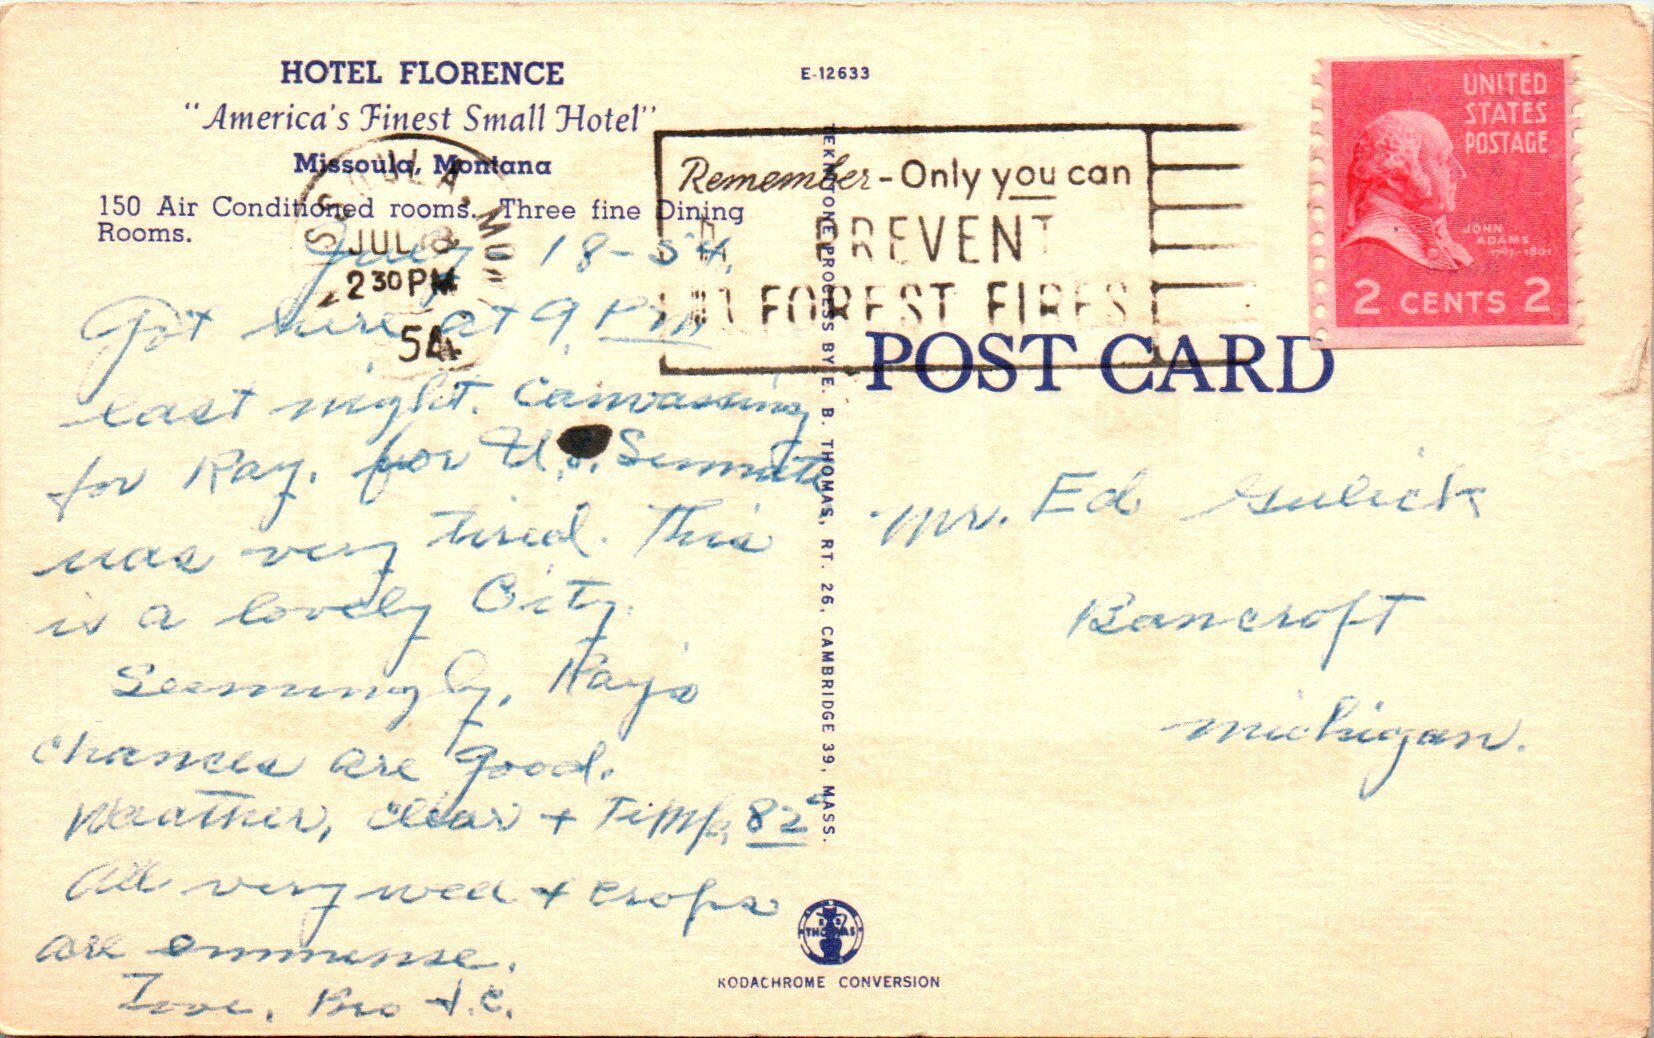 HOTEL FLORENCE
"America's Finest Small Hotel"
Missoula, Montana
150 Air Conditioned rooms. Three fine Dining
Rooms.
July 18-54.
Got here at 9 PM
last night. Canvassing
for Ray. for U.S. Sennate
was very tired. This
is a lovely City.
Seemingly, Ray's
chances are good.
Weather, clear + Temp. 82°
All very well + crops
are emmense.
Love, Bro
E-12633
MISSOULA, MONT
JUL 18
2 30 PM
54
Remember - Only you can
PREVENT
FOREST FIRES
TEKNITONE PROCESS BY E. B. THOMAS, RT. 26, CAMBRIDGE 39, MASS.
THOMAS
KODACHROME CONVERSION
UNITED
STATES
POSTAGE
JOHN
ADAMS
1797-1801
2 CENTS 2
POST CARD
Mr. Ed Gulick
Bancroft
Michigan.